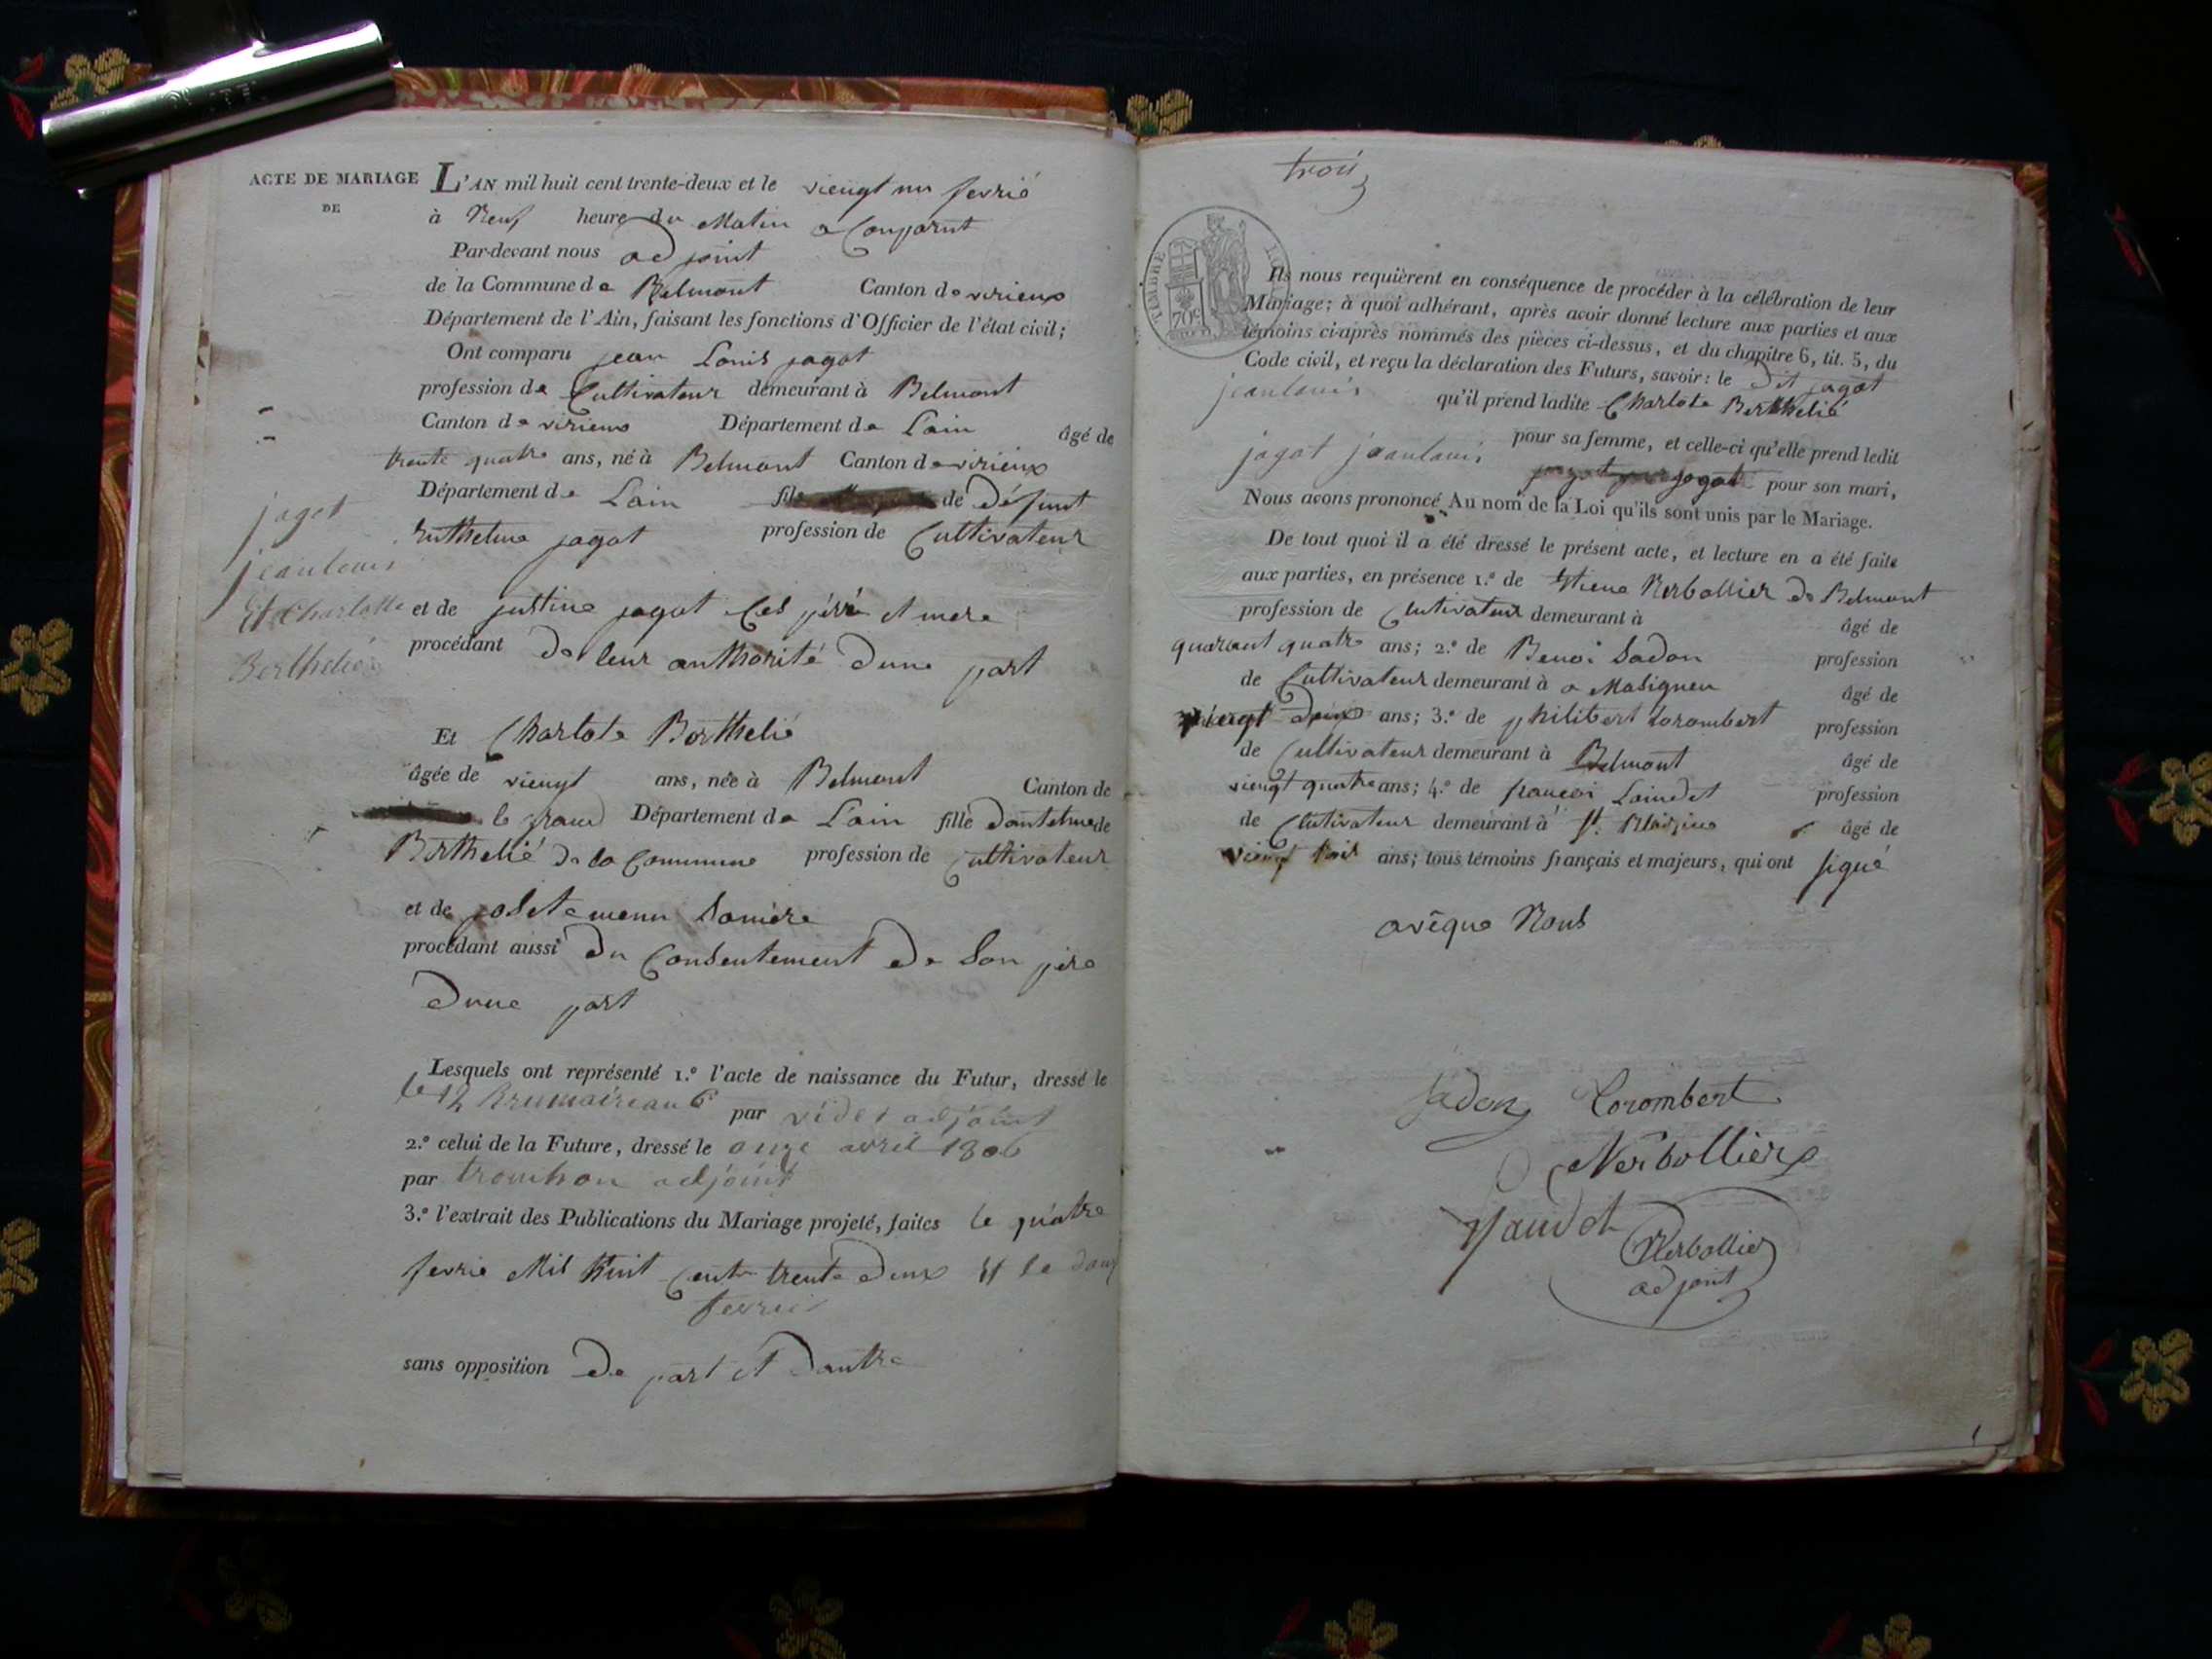 ACTE DE MARIAGE
DE
jagot
jeanlouis
Et Charlotte
Berthelié
L'AN mil huit cent trente-deux et le viengt un fevrié
à Neuf heure du Matin a Conparut
Par-devant nous adjoint
de la Commune de Belmont Canton de virieux
Département de l'Ain, faisant les fonctions d'Officier de l'état civil;
Ont comparu jean Louis jagot
profession de Cultivateur demeurant à Belmont
Canton de virieux Département de Lain âgé de
trente quatre ans, né à Belmont Canton de virieux
Département de Lain fils de défunt
Enthelme jagot profession de Cultivateur
et de justine jagot Ces péré et mere
procédant de leur authorité dune part
Et Charlote Berthelié
âgée de viengt ans, née à Belmont Canton de
le grand Département de Lain fille dantelme de
Berthelié de la Commune profession de Cultivateur
et de Samére
procédant aussi du Consentement de Son pére
dune part
Lesquels ont représenté 1.º l'acte de naissance du Futur, dressé le
le 12 brumaire an 6 par videt adjoint
2.º celui de la Future, dressé le onze avril 1806
par trouchon adjoint
3.º l'extrait des Publications du Mariage projeté, faites le quatre
fevrie Mil huit Cent trente deux et le douz
fevrier
sans opposition de part et dautre
trois
TIMBRE ROYAL
70c
Ils nous requièrent en conséquence de procéder à la célébration de leur
Mariage; à quoi adhérant, après avoir donné lecture aux parties et aux
témoins ci-après nommés des pièces ci-dessus, et du chapitre 6, tit. 5, du
Code civil, et reçu la déclaration des Futurs, savoir: le dit jagot
jeanlouis qu'il prend ladite Charlote Berthelié
pour sa femme, et celle-ci qu'elle prend ledit
jagot jeanlouis pour son mari,
Nous avons prononcé Au nom de la Loi qu'ils sont unis par le Mariage.
De tout quoi il a été dressé le présent acte, et lecture en a été faite
aux parties, en présence 1.º de Etiene Nerbollier de Belmont
profession de Cultivateur demeurant à âgé de
quarant quatre ans; 2.º de Benoi Sadon profession
de Cultivateur demeurant à a Masigneu âgé de
viengt deux ans; 3.º de philibert Corombert profession
de Cultivateur demeurant à Belmont âgé de
viengt quatre ans; 4.º de francoi Loindet profession
de Cultivateur demeurant à St. âgé de
viengt trois ans; tous témoins français et majeurs, qui ont signé
avéque Nous
Sadon Corombert
Nerbollier
Nerbollier
adjoint